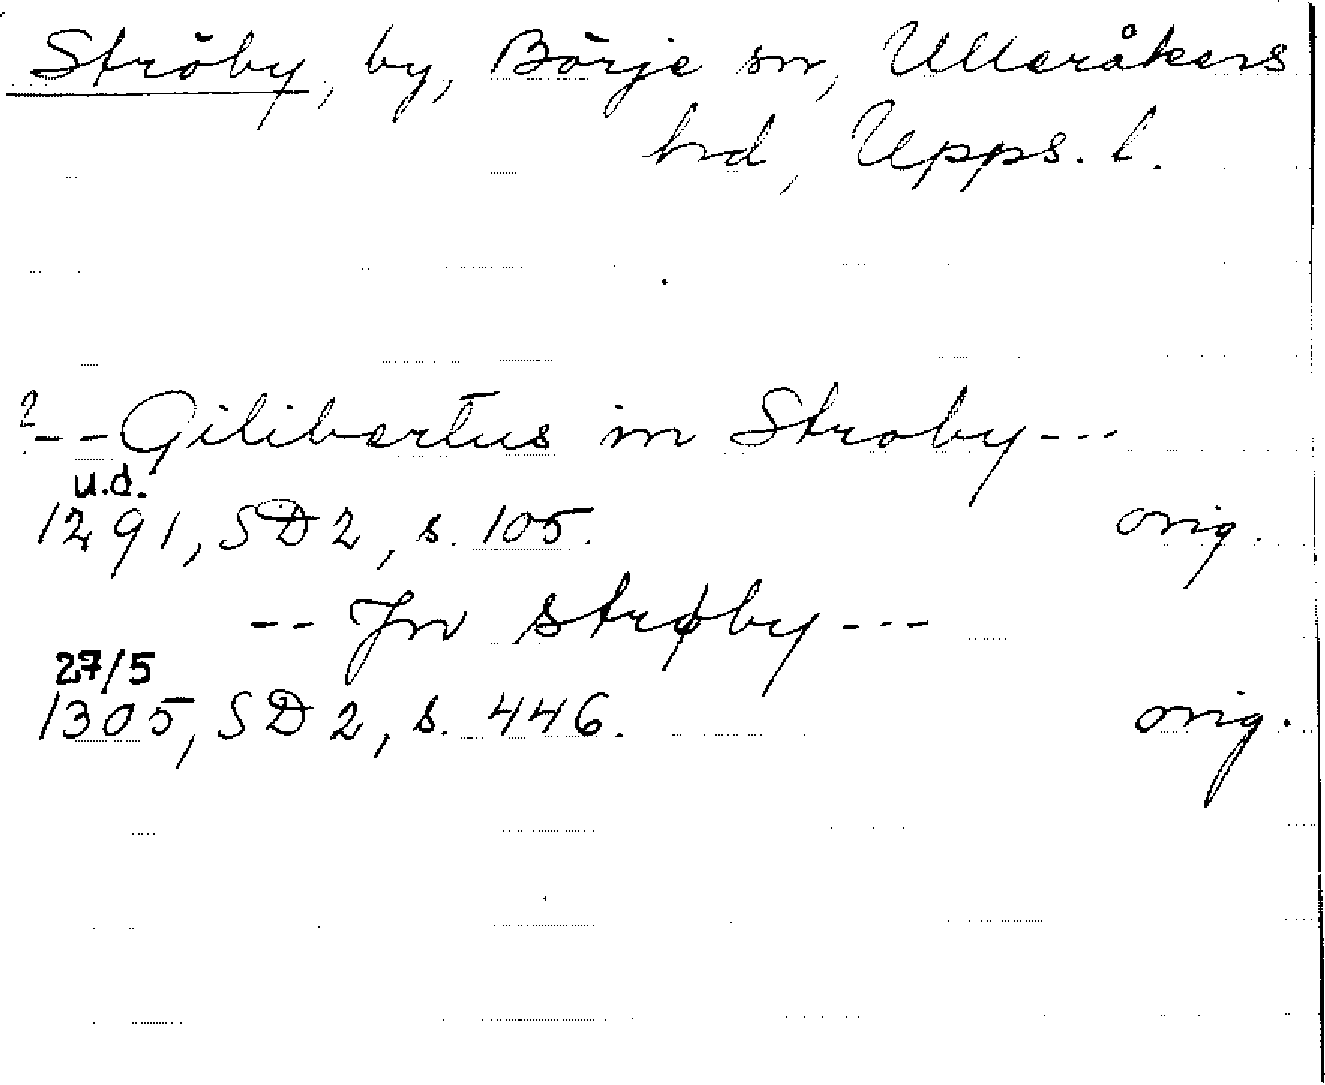 Ströby, by, Börje sn, Ulleråkers
hd, Upps. l.
? -- Gilibertus in Stroby ---
u.d.
1291, SD 2, s. 105. orig.
-- Jn strøby ---
27/5
1305, SD 2, s. 446. orig.